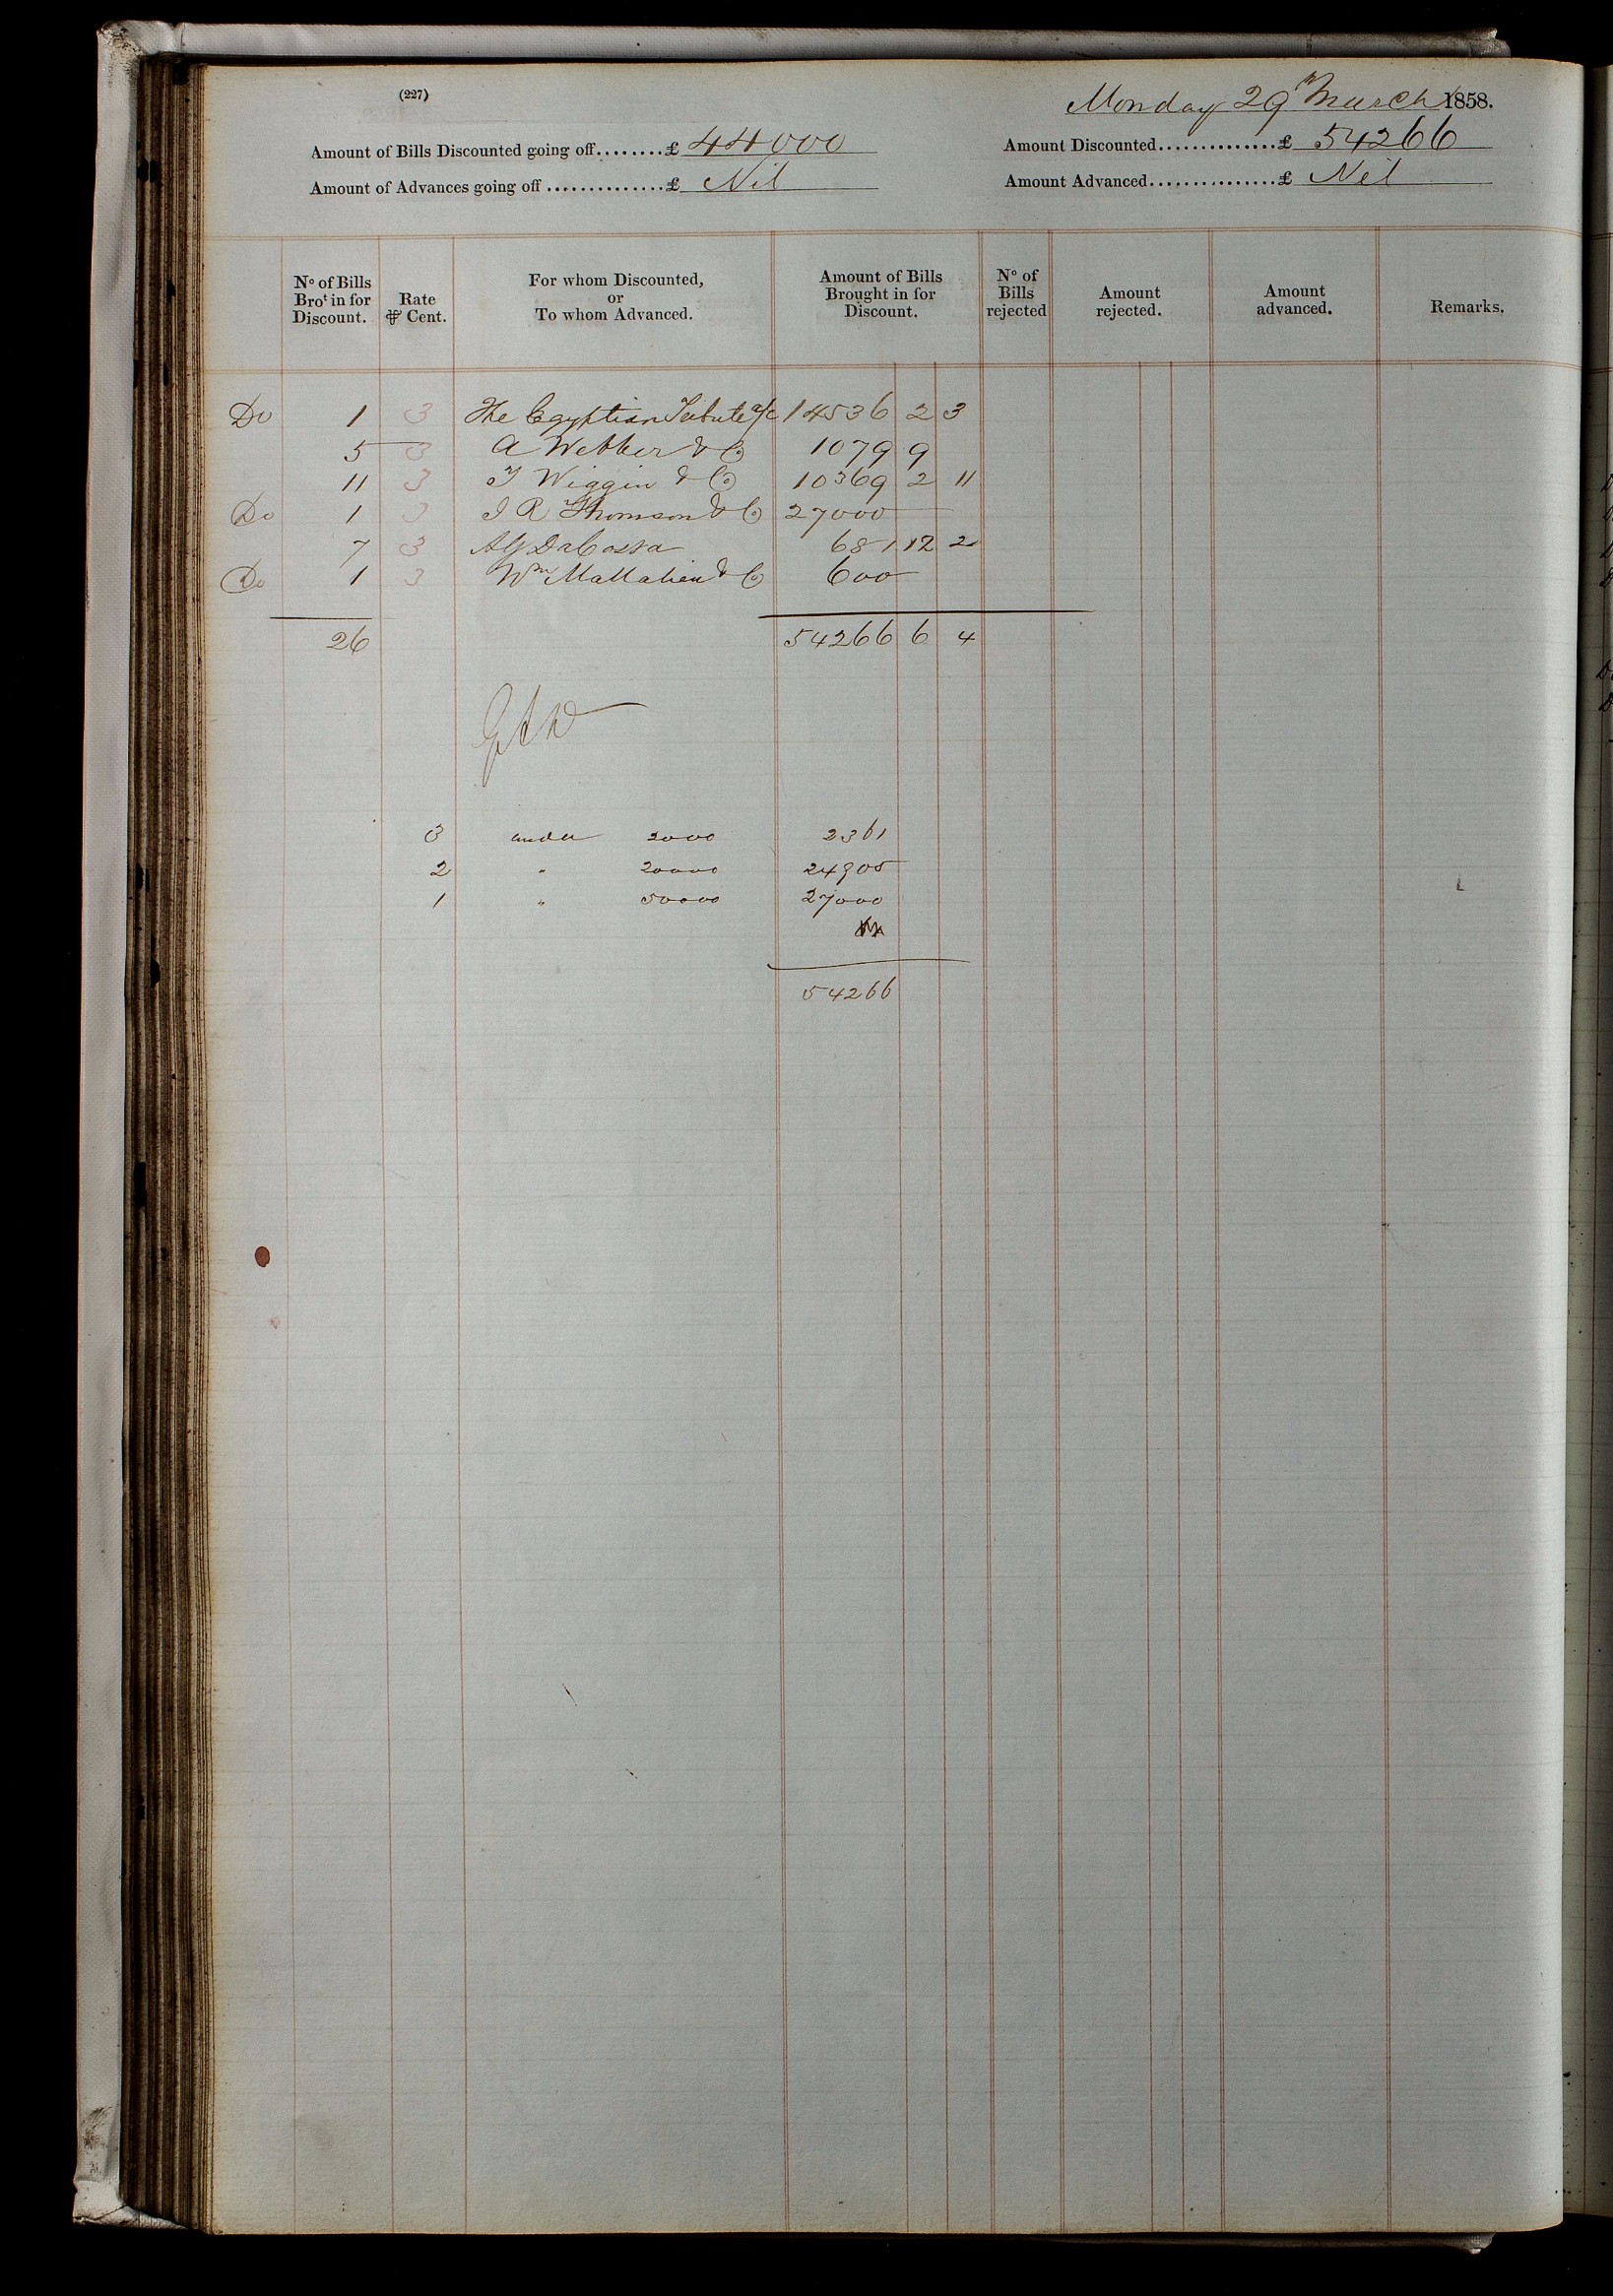 (227)
Monday 29th March 1858.
Amount of Bills Discounted going off........£ 44000
Amount Discounted..............£ 54266
Amount of Advances going off ..............£ Nil
Amount Advanced...............£ Nil
No of Bills Brot in for Discount.
Rate ⅌ Cent.
For whom Discounted, or To whom Advanced.
Amount of Bills Brought in for Discount.
No of Bills rejected
Amount rejected.
Amount advanced.
Remarks.
Do 1 3 The Egyptian Tribute a/c 14536 2 3
5 3 A Webber & Co 1079 9
11 3 T Wiggin & Co 10369 2 11
Do 1 3 J R Thomson & Co 27000
7 3 DaCosta 681 12 2
Do 1 3 Wm Mallalieu & Co 600
26 54266 6 4
3 under 2000 2361
2 " 20000 24905
1 " 50000 27000
54266